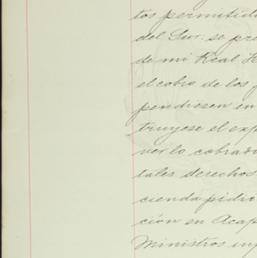 tos permitido
del Sur: se pre
de mi Real H
el cobro de los
pendiesen en
truyese el exp
ver lo cobrad
tales derechos
cienda pidio
ción en Acap
Ministros inf